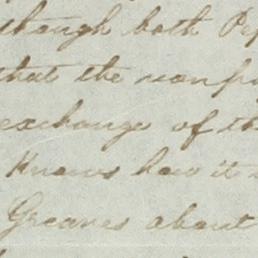 though both Pep
that the nonpa
exchange of th
Knows how it
Greaves about